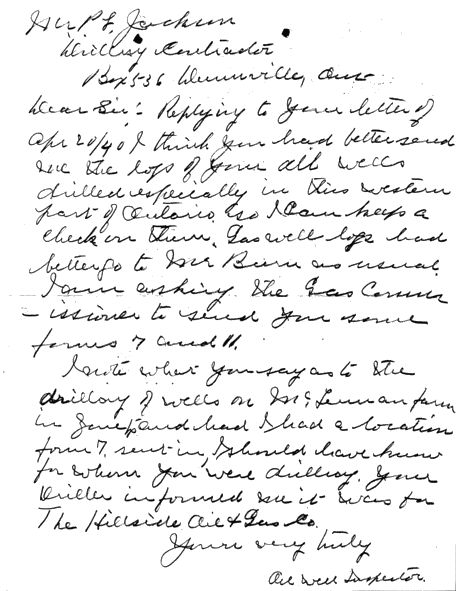 Mr P. L. Jackson
Drilling Contractor
Box 536 Dunnville, Ont
Dear Sir:- Replying to your letter of
Apr 20/40 I think you had better send
me the logs of your all wells
drilled especially in this western
part of Ontario, so I can keep a
check on them. Gas well logs had
better go to Mr as usual.
I am asking the Gas Comm
-issioner to send you some
forms 7 and 11.
I note what you say as to the
drilling of wells on McLennan farm
in and had I had a location
form 7, sent in, I should have know
for whom you were drilling. Your
Driller informed me it was for
The Hillside Oil & Gas Co.
Yours very truly
Oil Well Inspector.